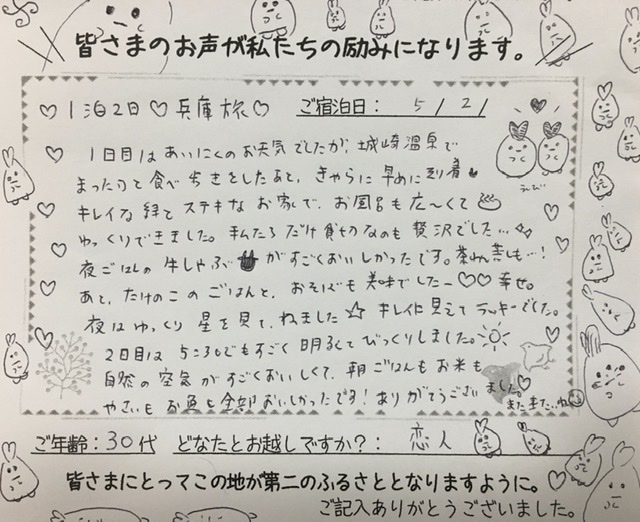 皆さまのお声が私たちの励みになります。
♡1泊2日♡兵庫旅♡ ご宿泊日: 5/2/
1日目はあいにくのお天気でしたが、城崎温泉で
まったりと食べ歩きをしたあと、きゃらに早めに到着
キレイな緑とステキなお家で、お風呂も広〜くて♨
ゆっくりできました。私たちだけ貸切なのも贅沢でした…
夜ごはんの牛しゃぶがすごくおいしかったです。茶わん蒸しも…!
あと、たけのこのごはんと、おそばも美味でしたー♡♡幸せ。
夜はゆっくり星を見て、ねました☆キレイに見えてラッキーでした。
2日目は5:30でもすごく明るくてびっくりしました。
自然の空気がすごくおいしくて、朝ごはんもお米も
やさいもお魚も全部おいしかったです!ありがとうござい
ました♡
またきた…ね
ご年齢:30代 どなたとお越しですか?: 恋人
皆さまにとってこの地が第二のふるさととなりますように。
ご記入ありがとうございました。